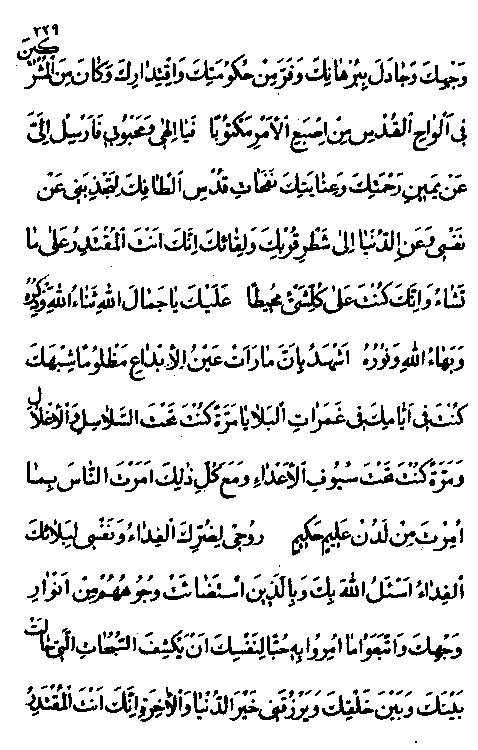 ٢٢٩
وَجْهِكَ وَجَادَلَ بِبُرْهَانِكَ وَفَرَّ مِنْ حُكُومَتِكَ وَاقْتِدَارِكَ وَكَانَ مِنَ الْمُشْرِكِينَ
فِی أَلْوَاحِ الْقُدْسِ مِنْ إِصْبَعِ الْأَمْرِ مَكْتُوبًا فَيَا إِلٰهِی وَمَحْبُوبِی فَأَرْسِلْ إِلَیَّ
عَنْ يَمِينِ رَحْمَتِكَ وَعِنَايَتِكَ نَفَحَاتِ قُدْسِ أَلْطَافِكَ لِتَجْذِبَنِی عَنْ
نَفْسِی وَعَنِ الدُّنْيَا إِلَی شَطْرِ قُرْبِكَ وَلِقَائِكَ إِنَّكَ أَنْتَ الْمُقْتَدِرُ عَلَی مَا
تَشَاءُ وَإِنَّكَ كُنْتَ عَلَی كُلِّشَیْءٍ مُحِيطًا عَلَيْكَ يَا جَمَالَ اللهِ ثَنَاءُ اللهِ وَذِكْرُهُ
وَبَهَاءُ اللهِ وَنُورُهُ أَشْهَدُ بِأَنَّ مَا رَأَتْ عَيْنُ الْإِبْدَاعِ مَظْلُومًا شِبْهَكَ
كُنْتَ فِی أَيَّامِكَ فِی غَمَرَاتِ الْبَلَايَا مَرَّةً كُنْتَ تَحْتَ السَّلَاسِلِ وَالْأَغْلَالِ
وَمَرَّةً كُنْتَ تَحْتَ سُيُوفِ الْأَعْدَاءِ وَمَعَ كُلِّ ذٰلِكَ أَمَرْتَ النَّاسَ بِمَا
أُمِرْتَ مِنْ لَدُنْ عَلِيمٍ حَكِيمٍ رُوحِی لِضُرِّكَ الْفِدَاءُ وَنَفْسِی لِبَلَائِكَ
الْفِدَاءُ أَسْئَلُ اللهَ بِكَ وَبِالَّذِينَ اسْتَضَائَتْ وُجُوهُهُمْ مِنْ أَنْوَارِ
وَجْهِكَ وَاتَّبَعُوا مَا أُمِرُوا بِهِ حُبًّا لِنَفْسِكَ أَنْ يَكْشِفَ السُّبُحَاتِ الَّتِی حَالَتْ
بَيْنَكَ وَبَيْنَ خَلْقِكَ وَيَرْزُقَنِی خَيْرَ الدُّنْيَا وَالْآخِرَةِ إِنَّكَ أَنْتَ الْمُقْتَدِرُ